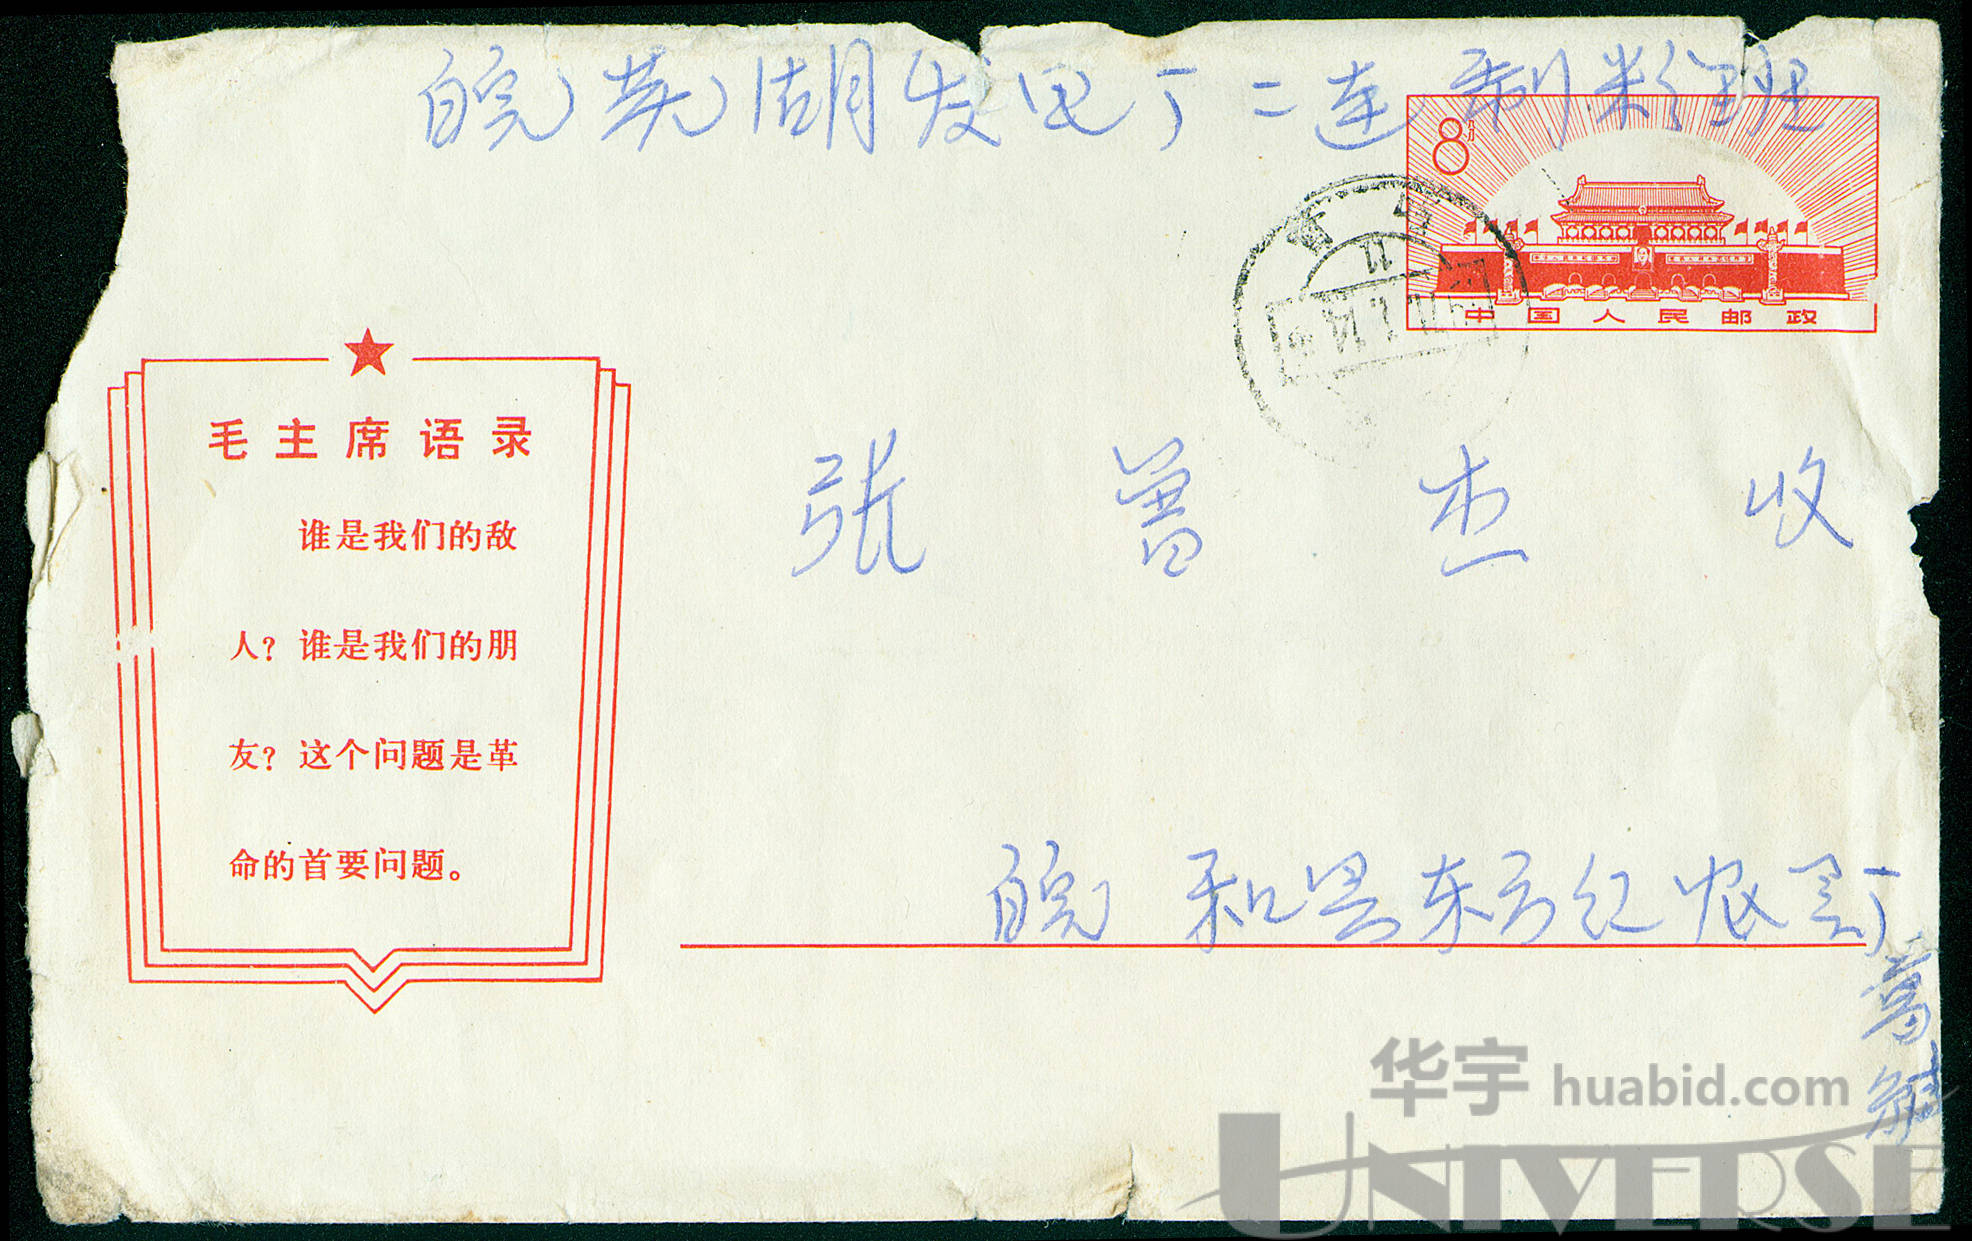 皖芜湖发电厂二连制粉班
8分
中国人民邮政
11
毛主席语录
谁是我们的敌
人?谁是我们的朋
友?这个问题是革
命的首要问题。
张曾杰收
皖和县东方红农具厂
华宇 huabid.com
UNIVERSE